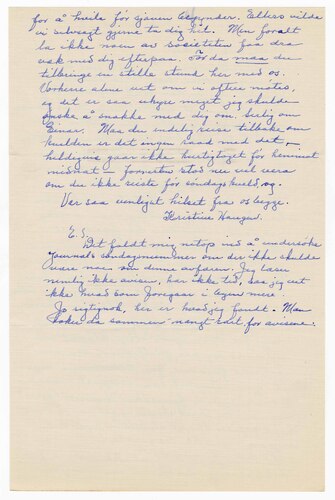 for å hvile før sjauen begynder. Ellers vilde
vi uhvorgt gjerne ta dig hit. Men foralt
la ikke noen av sosieteten faa dra
avsk med dig efterpaa. For da maa du
tilbringe en stille stund her med os.
Vorherre alene vet om vi oftere møtes,
og det er saa uhyre meget jeg skulde
ønske å snakke med dig om, særlig om
Einar. Maa du endelig reise tilbake om
kvelden er det ingen raad med det –
heldigvis gaar ikke hurtigtoget før henimot
midnat – forresten stod nu vel være
om du ikke reiste før søndags kveld, og.
Vær saa venligst hilset fra os begge.
Kristine Haugen.
E.S.
Det faldt mig netop ind å undersøke
Journals søndagsnummer om der ikke skulde
være noe om denne avfæren. Jeg læser
nemlig ikke avisen, har ikke tid, saa jeg vet
ikke hvad som foregaar i byen mere.
Jo rigtignok, her er hvad jeg fandt. Man
koker da sammen mangt rart for aviserne.